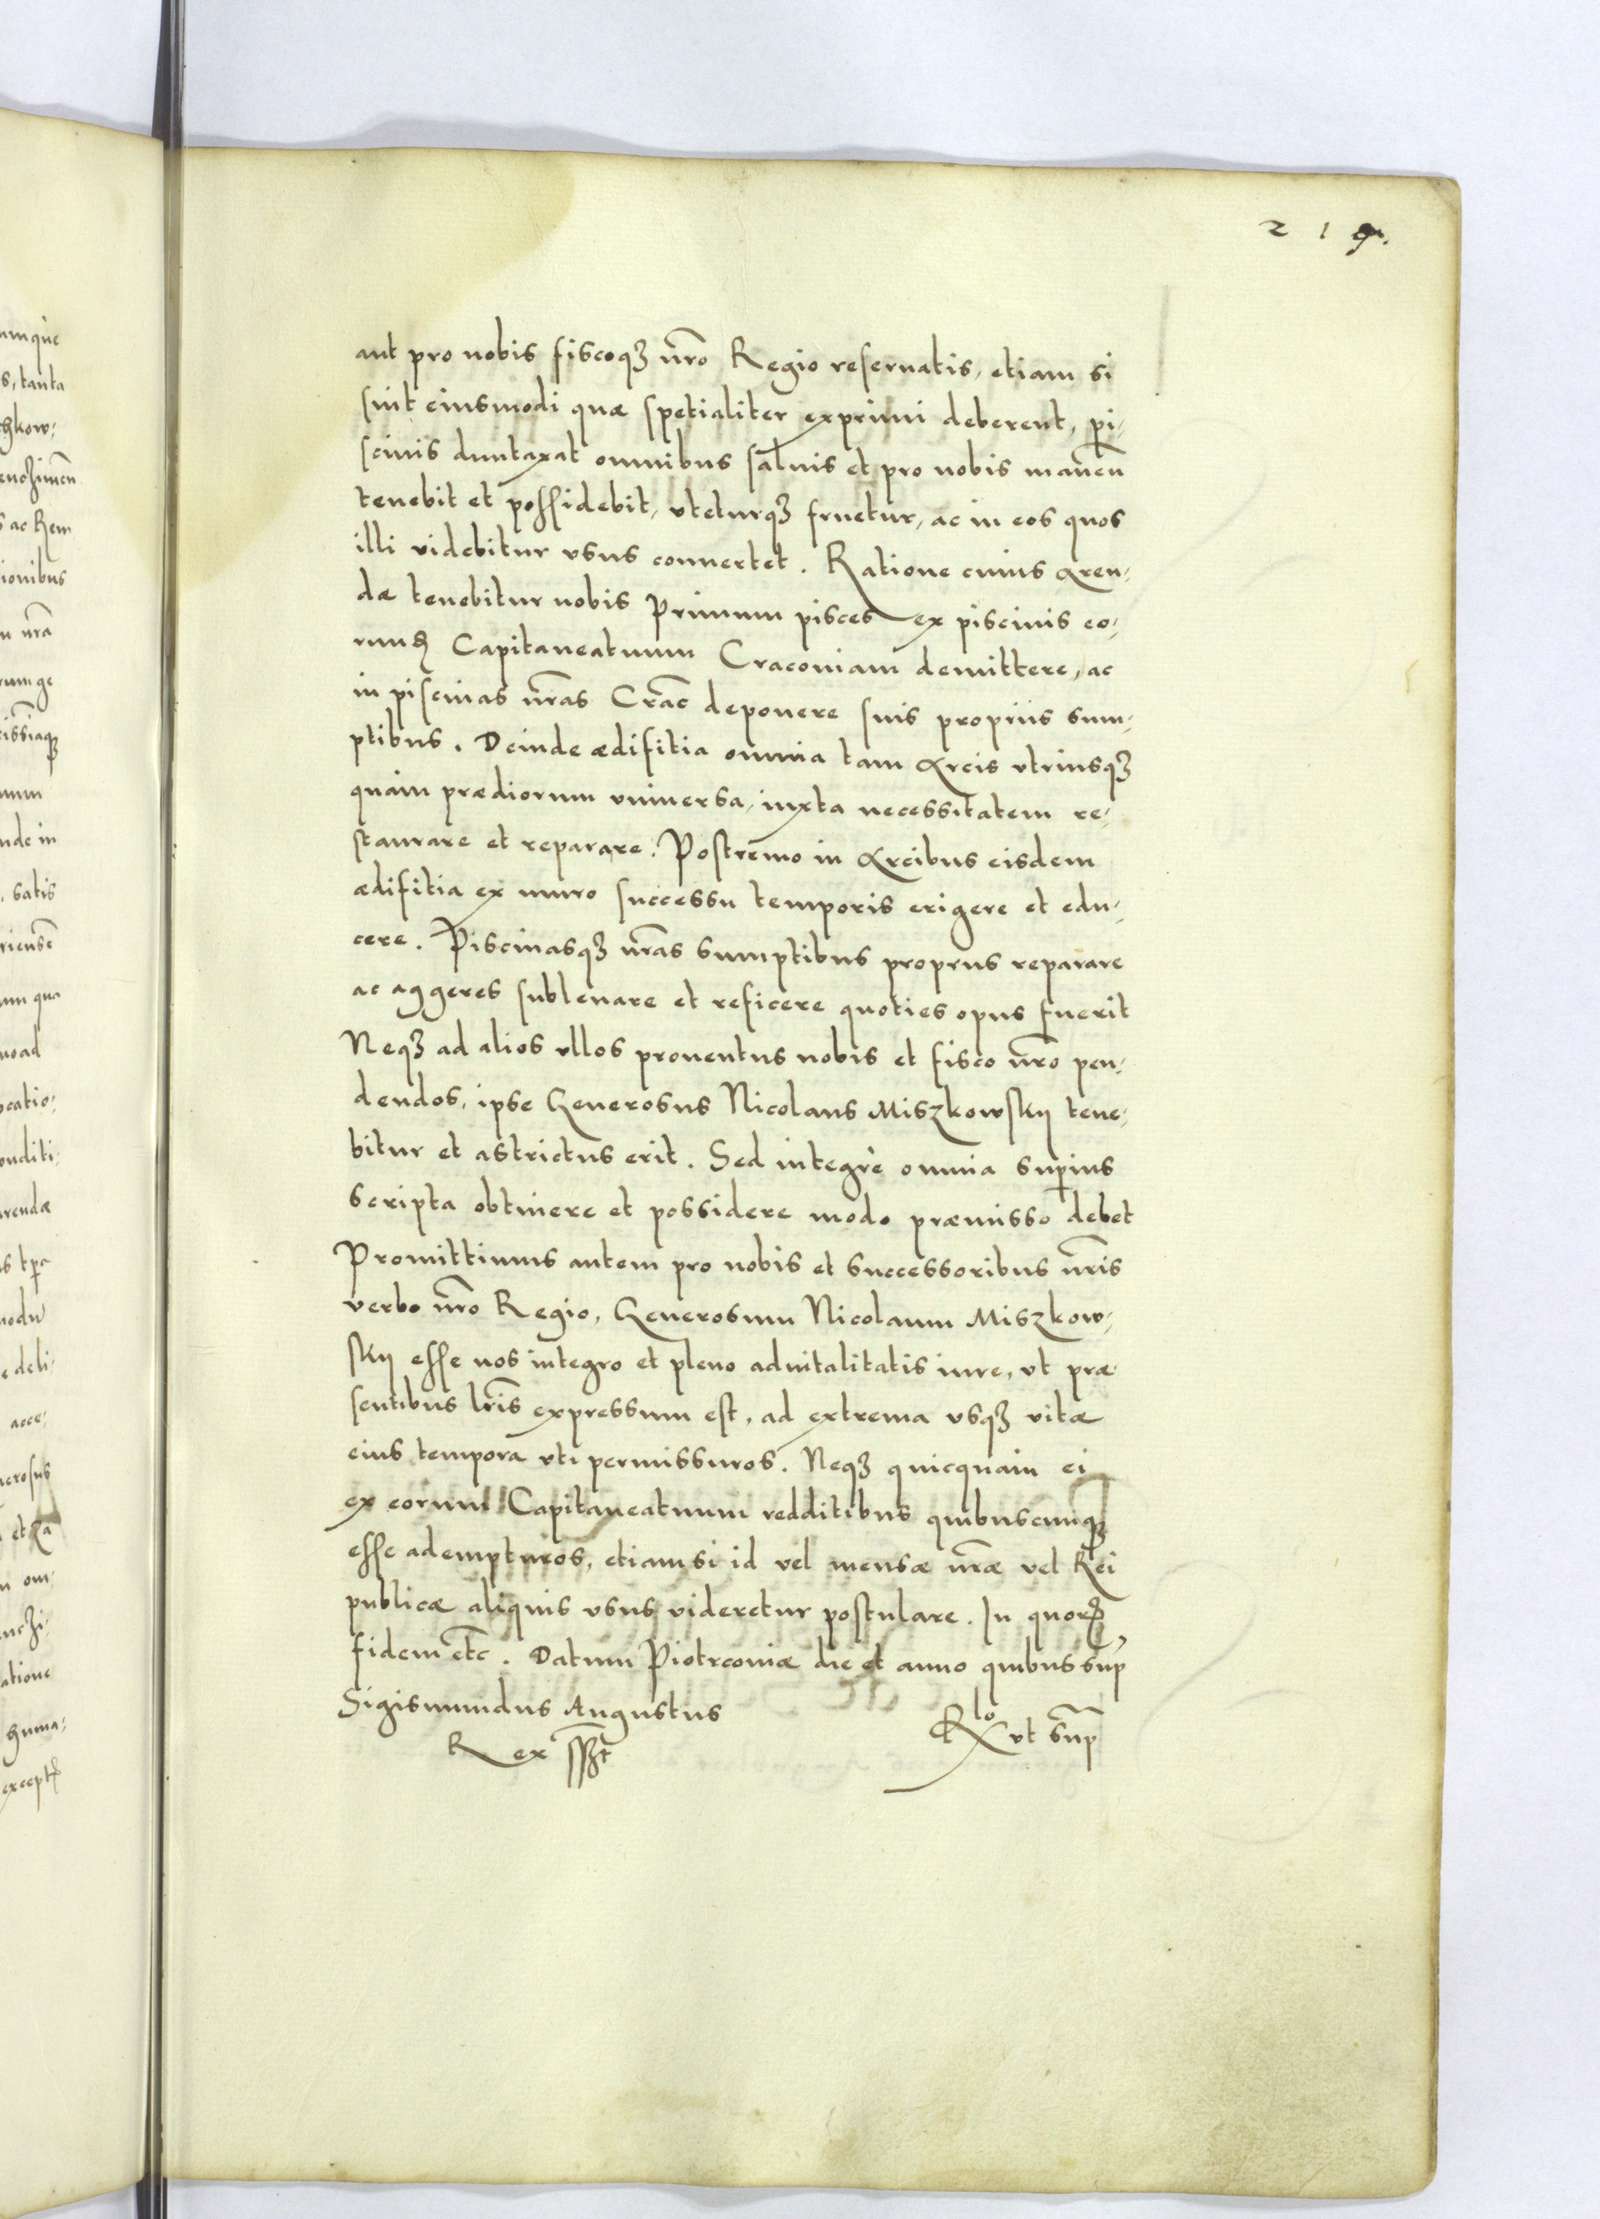 219.
aut pro nobis fiscoqȝ nr̃o Regio reseruatis, etiam si
sint eiusmodi quæ spetialiter exprimi deberent, pi-
scinis duntaxat omnibus saluis et pro nobis maneñ
tenebit et possidebit, vteturqȝ fruetur, ac in eos quos
illi videbitur vsus conuertet. Ratione cuius Aren-
dæ tenebitur nobis Primum pisces ex piscinis eo-
rundȝ Capitaneatuum Cracouiam demittere, ac
in piscinas nr̃as Crac̃ deponere suis proprijs sum-
ptibus. Deinde ædifitia omnia tam Arcis vtriusqȝ
quàm prædiorum vniuersa, iuxta necessitatem re-
staurare et reparare. Postremo in Arcibus eisdem
ædifitia ex muro successu temporis erigere et edu-
cere. Piscinasqȝ nr̃as sumptibus proprijs reparare
ac aggeres subleuare et reficere quoties opus fuerit
Neqȝ ad alios vllos prouentus nobis et fisco nr̃o pen-
dendos, ipse Generosus Nicolaus Miszkowskij tene-
bitur et astrictus erit. Sed integrè omnia superius
scripta obtinere et possidere modo præmisso debet
Promittimus autem pro nobis et successoribus nr̃is
verbo nr̃o Regio, Generosum Nicolaum Miszkow-
skij esse nos integro et pleno aduitalitatis iure, vt præ-
sentibus lr̃is expressum est, ad extrema vsqȝ vitæ
eius tempora vti permissuros. Neqȝ quicquam ei
ex eorum Capitaneatuum redditibus quibuscunqȝ
esse adempturos, etiamsi id vel mensæ nr̃æ vel Rei
publicæ aliquis vsus videretur postulare. In quorȝ
fidem etc̃. Datum Piotrcouiæ die et anno quibus sup
Sigismundus Augustus
Rex sszt
Rlõ vt sup̃